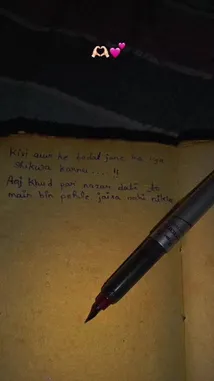 🫶🏻💕
Kisi aur ke badal jane ka kya
shikwa karna.....!!
Aaj khud par nazar dali to
main bhi pehle jaisa nahi